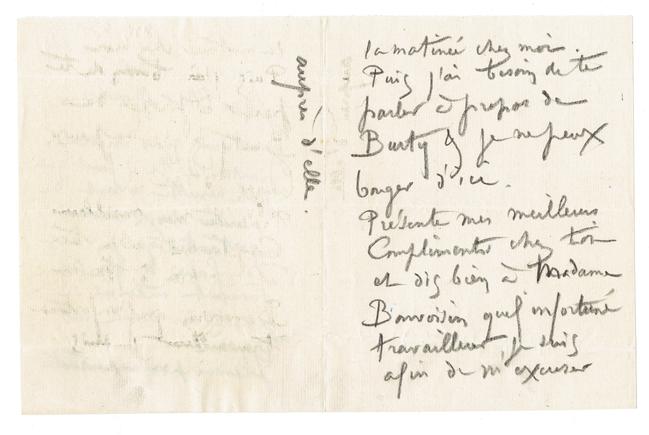 la matinée chez moi.
Puis j'ai besoin de te
parler à propos de
Burty & je ne peux
bouger d'ici.
Présente mes meilleurs
Compliments chez toi
et dis bien à Madame
Bonvoisin quel infortuné
travailleur je suis
afin de m'excuser
auprès d'elle.